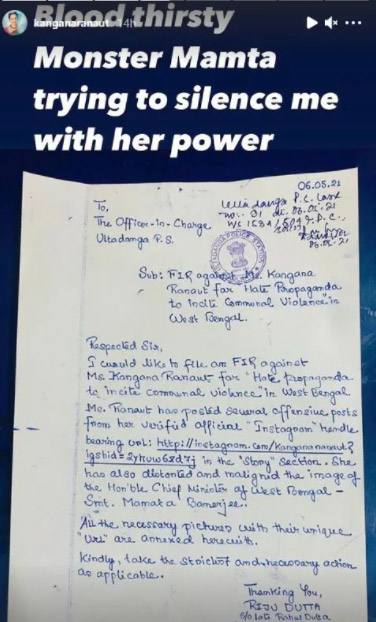 Blood thirsty
kanganaranaut 14h
Monster Mamta
trying to silence me
with her power
06.05.21
To,
The Officer-in-Charge
Ultadanga P.S.
Ultadanga P.S. Case
Sub: FIR against Ms. Kangana
Ranaut for Hate Propaganda
to incite Communal Violence in
West Bengal.
Respected Sir,
I would like to file an FIR against
Ms. Kangana Ranaut for "Hate propaganda
to incite communal violence" in West Bengal
Ms. Ranaut has posted several offensive posts
from her verified official "Instagram" handle
bearing url: http://instagram.com/kanganaranaut?
in the "Story" section. She
has also distorted and maligned the image of
the Hon'ble Chief Minister of West Bengal –
Smt. Mamata Banerjee.
All the necessary pictures with their unique
"url" are annexed herewith.
Kindly, take the strictest and necessary action
as applicable.
Thanking You,
RIJU DUTTA